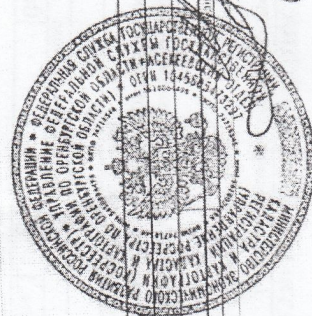 МИНИСТЕРСТВО ЭКОНОМИЧЕСКОГО РАЗВИТИЯ РОССИЙСКОЙ ФЕДЕРАЦИИ * ФЕДЕРАЛЬНАЯ СЛУЖБА ГОСУДАРСТВЕННОЙ РЕГИСТРАЦИИ,
КАДАСТРА И КАРТОГРАФИИ (РОСРЕЕСТР) * УПРАВЛЕНИЕ ФЕДЕРАЛЬНОЙ СЛУЖБЫ ГОСУДАРСТВЕННОЙ
РЕГИСТРАЦИИ, КАДАСТРА И КАРТОГРАФИИ ПО ОРЕНБУРГСКОЙ ОБЛАСТИ * АСЕКЕЕВСКИЙ ОТДЕЛ
(УПРАВЛЕНИЕ РОСРЕЕСТРА ПО ОРЕНБУРГСКОЙ ОБЛАСТИ)
ОГРН